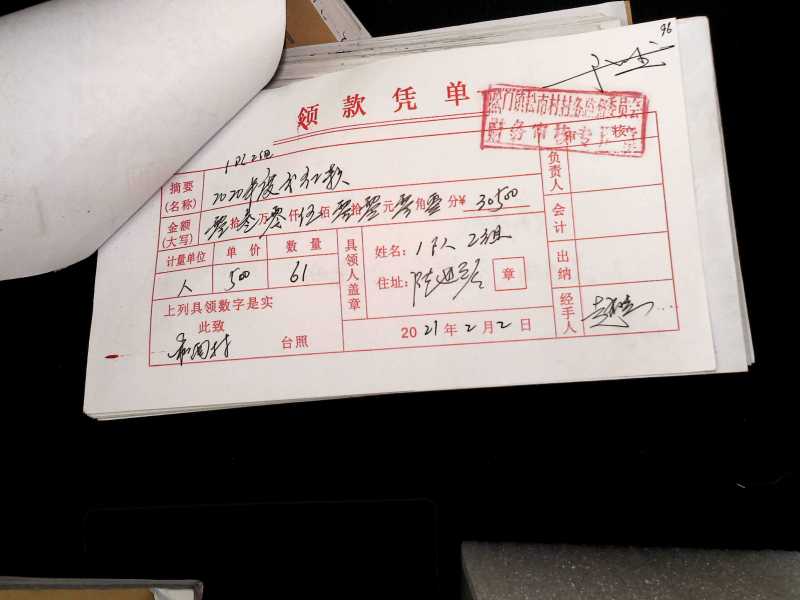 96
领款凭单
松门镇松市村村务监督委员会
财务审核专
核
1队2组
摘要(名称) 2020年度分红款
金额(大写) 零拾叁万零仟伍佰零拾零元零角零分¥ 30500
计量单位 单价 数量
人 500 61
上列具领数字是实
此致
台照
具领人盖章
姓名：1队 2组
住址：
章
2021年2月2日
负责人
会计
出纳
经手人